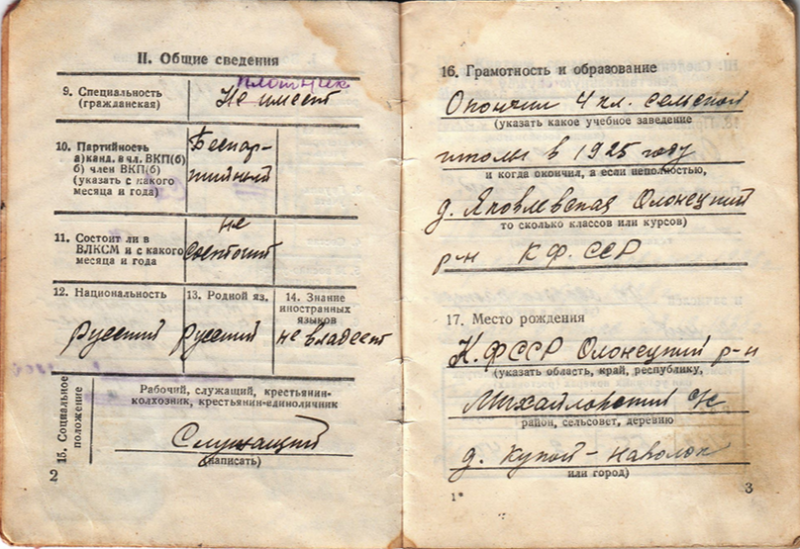 II. Общие сведения
плотник
9. Специальность
(гражданская)
Не имеет
10. Партийность
а) канд. в чл. ВКП(б)
б) член ВКП(б)
(указать с какого
месяца и года)
Беспар-
тийный
11. Состоит ли в
ВЛКСМ и с какого
месяца и года
не
состоит
12. Национальность
русский
13. Родной яз.
русский
14. Знание
иностранных
языков
не владеет
15. Социальное
положение
Рабочий, служащий, крестьянин-
колхозник, крестьянин-единоличник
Служащий
(написать)
2
16. Грамотность и образование
Окончил 4 кл. сельской
(указать какое учебное заведение
школы в 1925 году
и когда окончил, а если неполностью,
д. Яковлевская Олонецкий
то сколько классов или курсов)
р-н К Ф. ССР
17. Место рождения
К.ФССР Олонецкий р-н
(указать область, край, республику,
Михайловский с/с
район, сельсовет, деревню
д. Кукой-наволок
или город)
1*
3